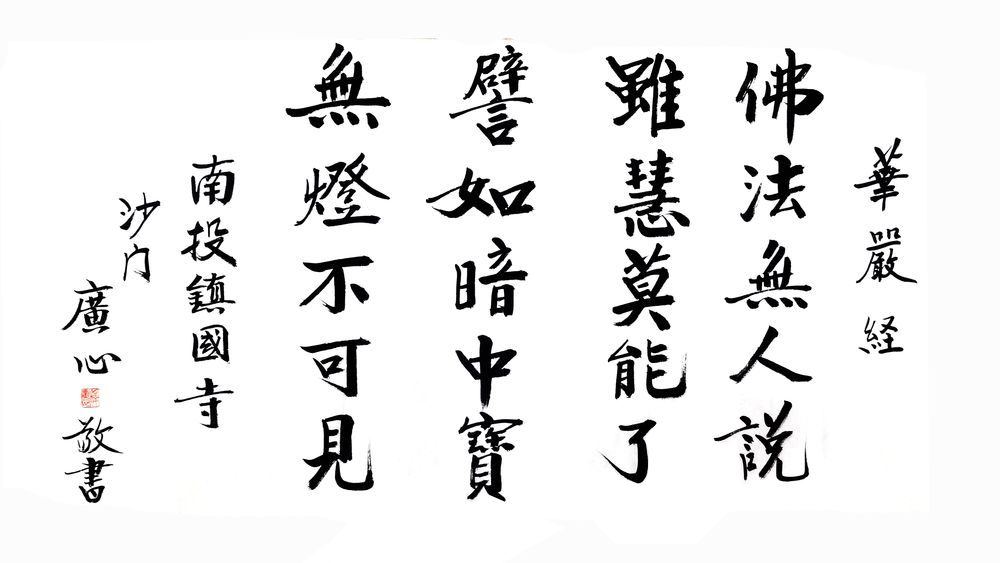 華嚴経
佛法無人説
雖慧莫能了
譬如暗中寶
無燈不可見
南投鎮國寺
沙门
廣心
敬書